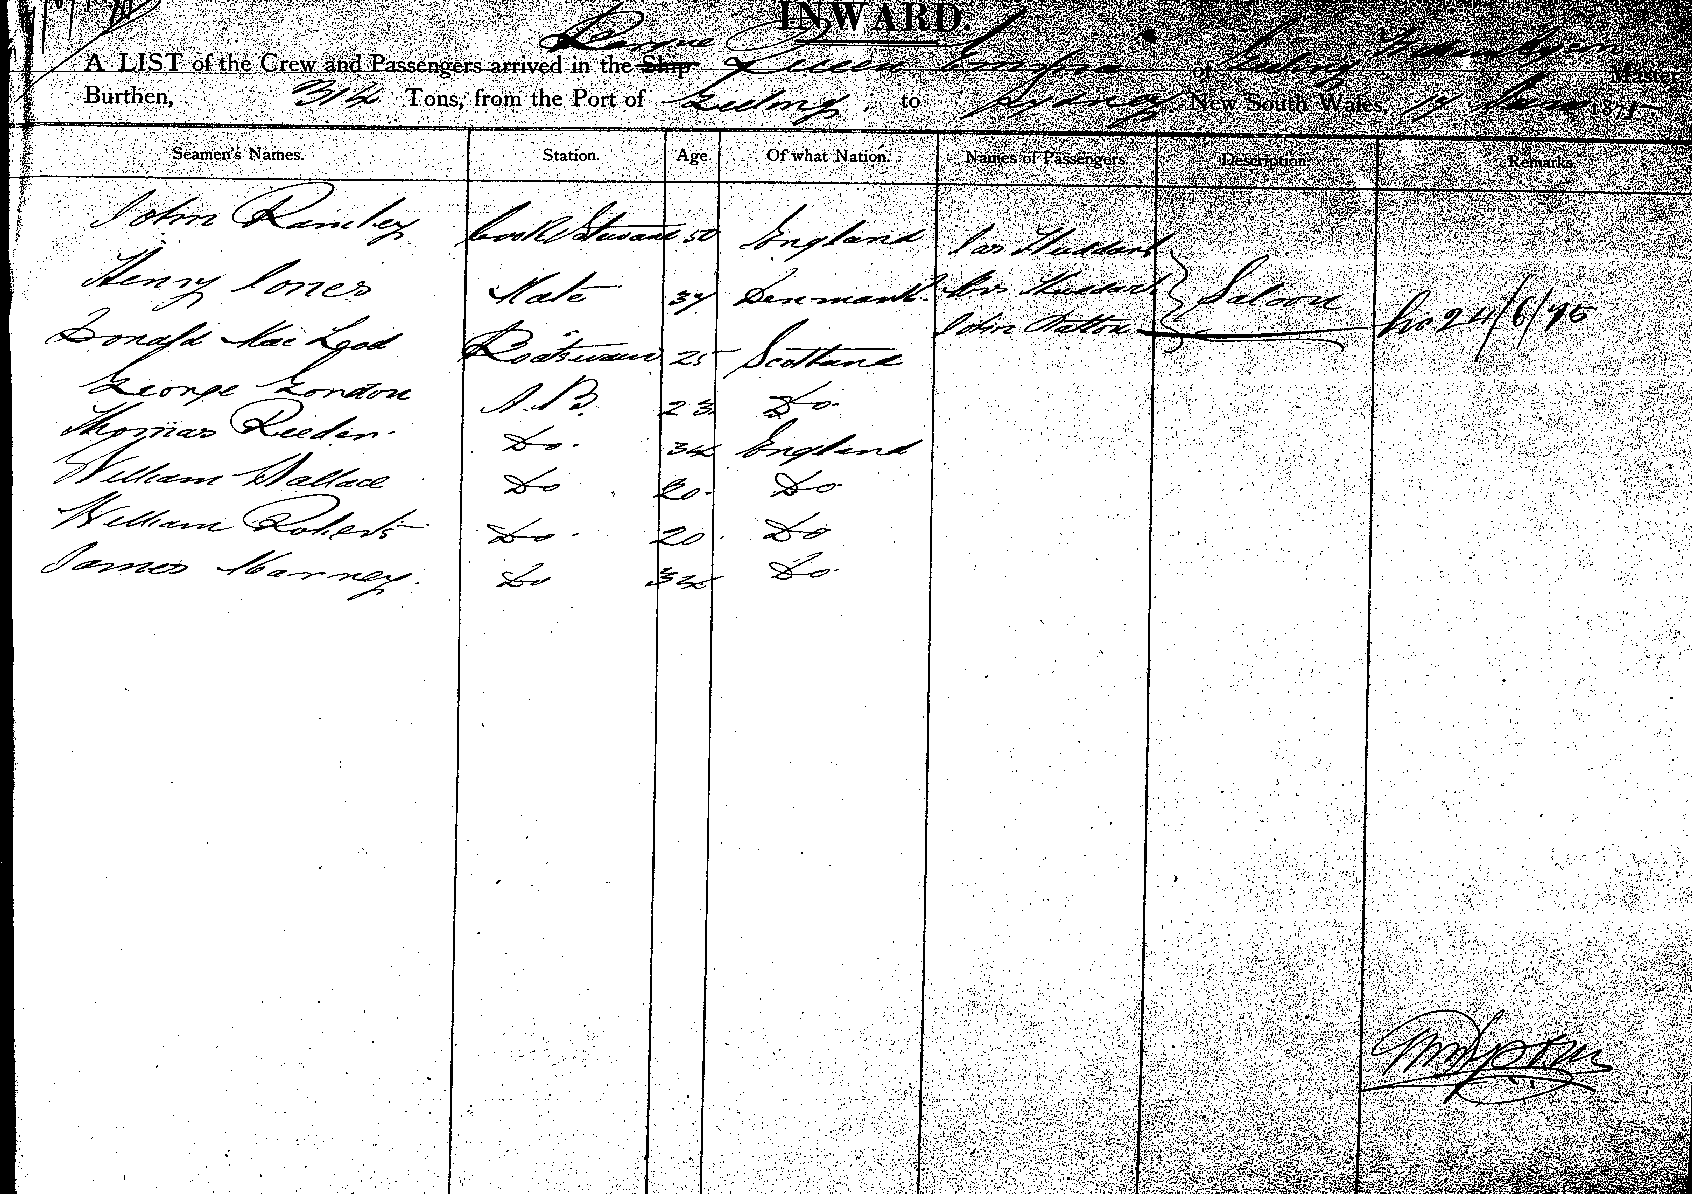 INWARD.
A LIST of the Crew and Passengers arrived in the Ship Barque Queen Emma of Geelong Master
Burthen, 314 Tons, from the Port of Geelong to Sydney New South Wales, 17 June 1875
Seamen's Names. Station. Age Of what Nation. Names of Passengers Description Remarks
John Ramley Cook & Steward 50 England Jas Huddart
Henry Jones Mate 37 Denmark. Mrs Huddart Saloon
Donald MacLeod Boatswain 25 Scotland John Patton 24/6/75
George Gordon A.B. 23 Do.
Thomas Reeder. Do. 34 England
William Wallace Do 20. Do
William Roberts Do. 20. Do
James Marney. Do 34 Do.